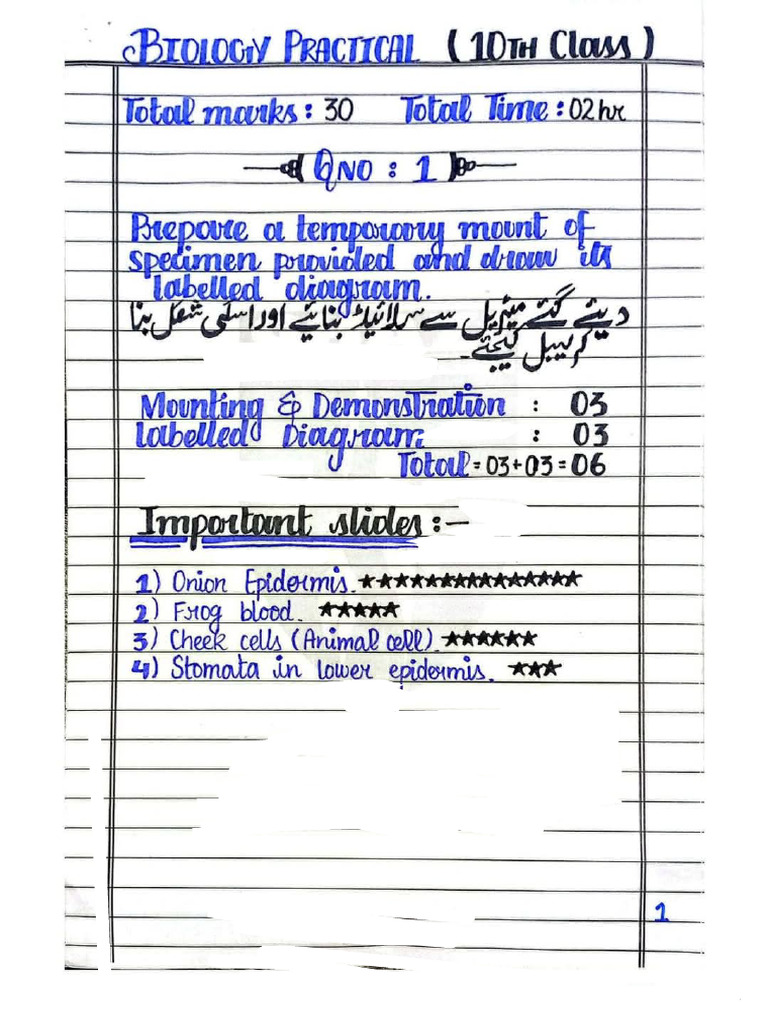 BIOLOGY PRACTICAL (10TH Class)
Total marks: 30 Total Time: 02hr
QNO : 1
Prepare a temporary mount of
specimen provided and draw its
labelled diagram.
دیئے گئے میٹریل سے سلائیڈ بنائیے اور اسکی شکل بنا
کر لیبل کیجئے۔
Mounting & Demonstration : 03
Labelled Diagram : 03
Total = 03+03 = 06
Important slides :-
1) Onion Epidermis. ★★★★★★★★★★★★★★
2) Frog blood. ★★★★★
3) Cheek cells (Animal cell). ★★★★★★
4) Stomata in lower epidermis. ★★★
1